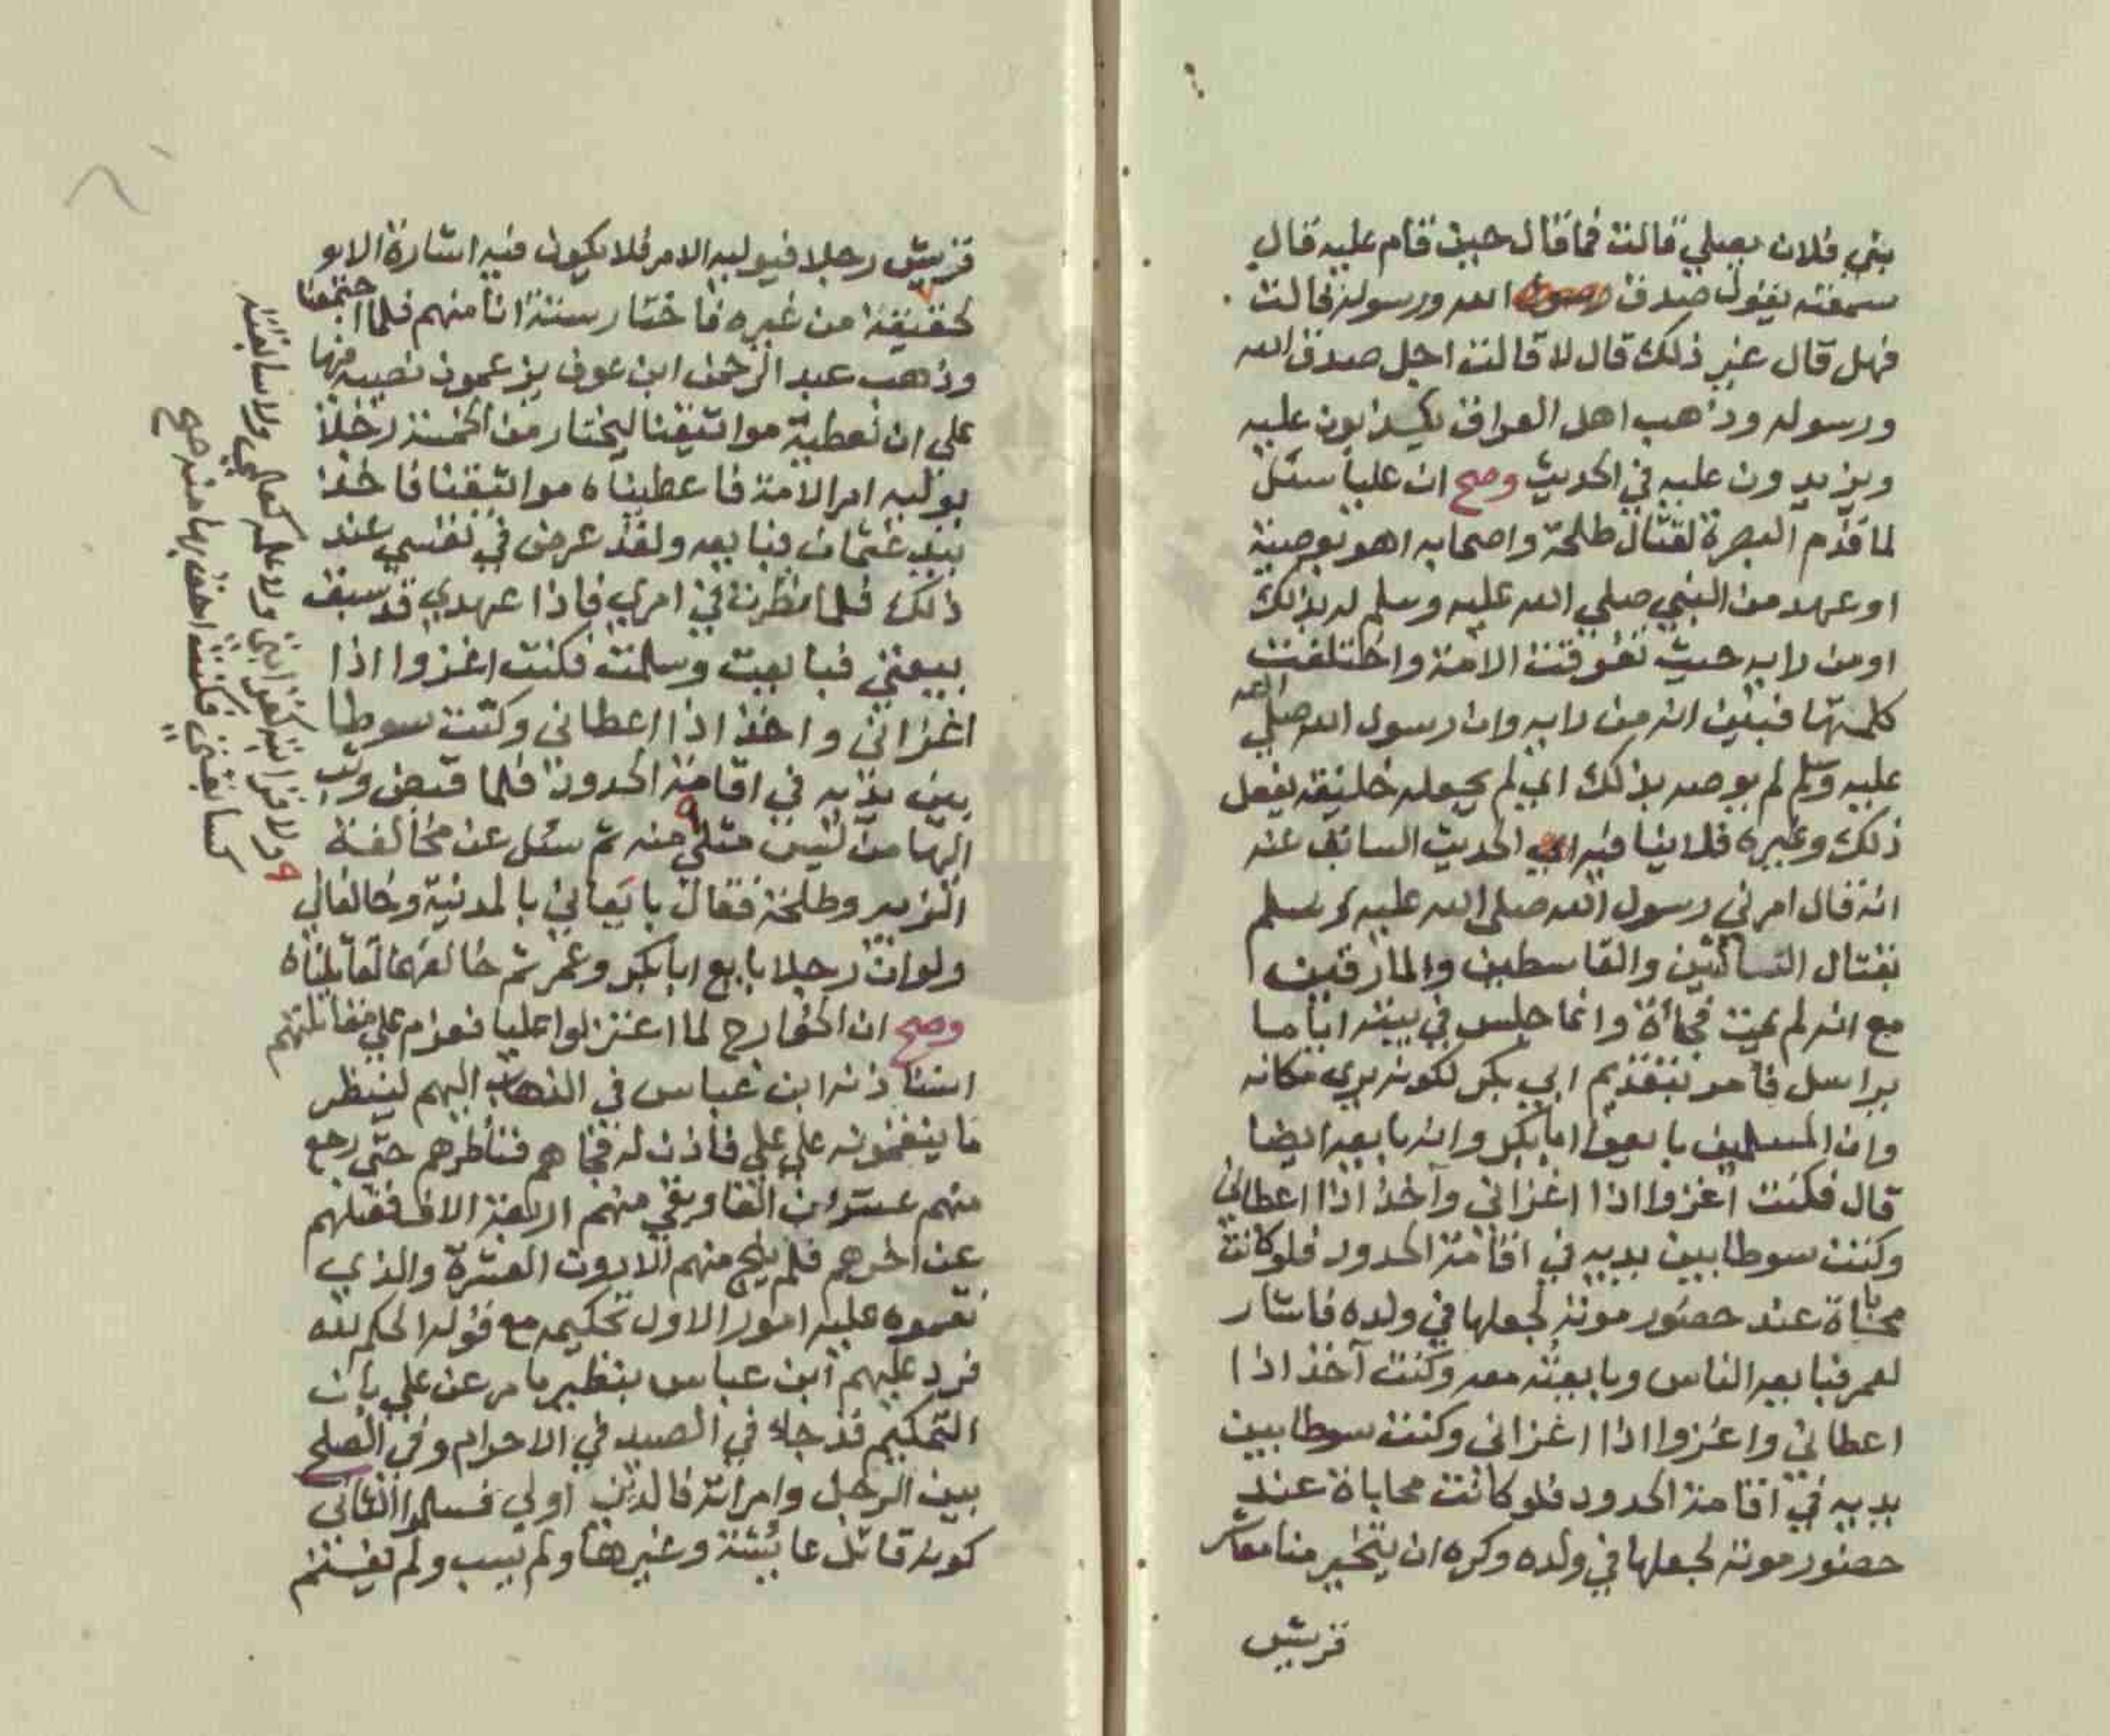 بني فلان يصلي قالت فما قال حين قام عليه قال
سمعته يقول صدق الله ورسوله قالت
فهل قال غير ذلك قال لا قالت اجل صدق الله
ورسوله وذهب اهل العراق يكذبون عليه
ويزيدون عليه في الحديث وصح ان عليا سئل
لما قدم البصرة لقتال طلحة واصحابه اهو بوصية
او عهد من النبي صلي الله عليه وسلم له بذلك
او من رايه حيث تفرقت الامة واختلفت
كلمتها فبين انه من رايه وان رسول الله صلي الله
عليه وسلم لم يوصه بذلك اي لم يجعله خليفة يفعل
ذلك وغيره فلا ينافيه الحديث السابق عنه
انه قال امرني رسول الله صلي الله عليه وسلم
بقتال الناكثين والقاسطين والمارقين
مع انه لم يمت فجأة وانما جلس في بيته اياما
يراسل فأمر بتقديم ابي بكر لكونه يري مكانه
وان المسلمين بايعوا ابا بكر وانه بايعه ايضا
قال فكنت اغزوا اذا اغزاني وآخذ اذا اعطاني
وكنت سوطا بين يديه في اقامة الحدود فلو كانت
محاباة عند حضور موته لجعلها في ولده فاشار
لعمر فبايعه الناس وبايعته معه وكنت آخذ اذا
اعطاني واغزوا اذا اغزاني وكنت سوطا بين
يديه في اقامة الحدود فلو كانت محاباة عند
حضور موته لجعلها في ولده وكره ان يتخير منا معاشر
قريش
قريش رجلا فيوليه الامر فلا يكون فيه اشارة الا بو
لحقيقة من غيره فاختار ستة انا منهم فلما اجتمعنا
وذهب عبد الرحمن ابن عوف يزعمون نصيبه منها
علي ان نعطية مواثيقنا ليختار من الخمسة رجلا
يوليه امر الامة فاعطيناه مواثيقنا فاخذ
بيد عثمان فبايعه ولقد عرض في نفسي عند
ذلك فلما نظرت في امري فاذا عهدي قد سبق
بيعتي فبايعت وسلمت فكنت اغزوا اذا
اغزاني واخذ اذا اعطاني وكنت سوطا
بين يديه في اقامة الحدود فلما قبض وثب
اليها من ليس مثلي منه ثم سئل عن مخالفة
الزبير وطلحة فقال بايعاني بالمدنية وخالفاني
ولو ان رجلا بايع ابا بكر وعمر ثم خالفهما لقاتلناه
وصح ان الخوارج لما اعتزلوا عليا فعزم علي مقاتلتهم
استاذنه ابن عباس في الذهاب اليهم لينظر
ما ينقمونه علي علي فاذن له فجاهم فناظرهم حتي رجع
منهم عشرون الفا وبقي منهم اربعة الاف فقتلهم
عن اخرهم فلم ينج منهم الا دون العشرة والذي
نقموه عليه امور الاول تحكيمه مع قوله الحكم لله
فرد عليهم ابن عباس بنظير ما مر عن علي بان
التحكيم قد جاء في الصيد في الاحرام وفي الصلح
بين الرجل وامراته فالدين اولي فسلموا الثاني
كونه قاتل عائشة وغيرها ولم يسب ولم يغنم
ولا قرابته كقرابتي ولا علمه كعلمي ولا سابقته
كسابقتي فكنت احق بها منه صح